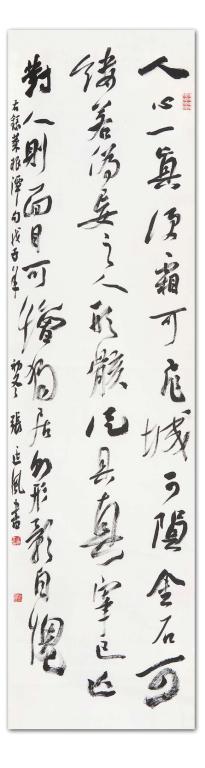 人心一真便霜可飛城可隕金石可
鏤若偽妄之人形骸徒具真宰已亡
對人則面目可憎獨居則形影自愧
右錄菜根潭句戊子年初冬張追風書